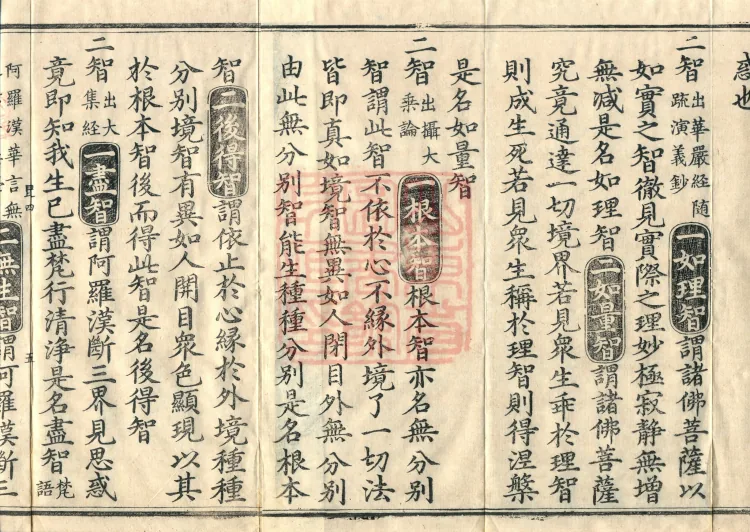 惑也
二智出華嚴經隨疏演義鈔一如理智謂諸佛菩薩以
如實之智徹見實際之理妙極寂靜無增
無减是名如理智二如量智謂諸佛菩薩
究竟通達一切境界若見眾生乖於理智
則成生死若見眾生稱於理智則得涅槃
是名如量智
二智出攝大乘論一根本智根本智亦名無分別
智謂此智不依於心不緣外境了一切法
皆即真如境智無異如人閉目外無分別
由此無分別智能生種種分別是名根本
智二後得智謂依止於心緣於外境種種
分別境智有異如人開目眾色顯現以其
於根本智後而得此智是名後得智
二智出大集經一盡智謂阿羅漢斷三界見思惑
竟即知我生已盡梵行清淨是名盡智梵語
五
阿羅漢華言無二無生智謂阿羅漢斷三